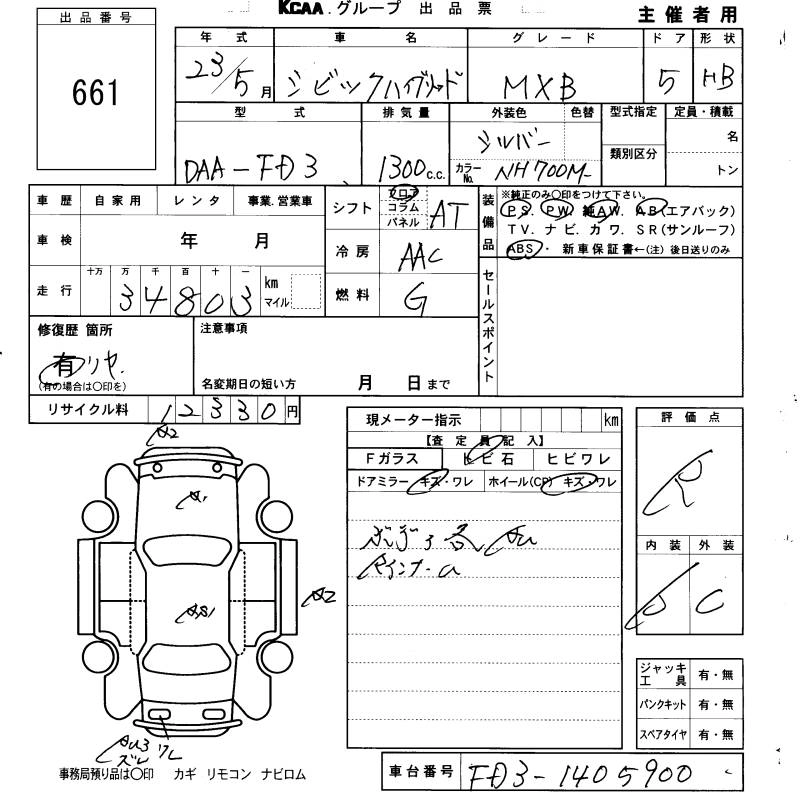 KCAA.グループ 出品票
主催者用
出品番号
661
年式 車名 グレード ドア 形状
23/5月 シビックハイブリッド MXB 5 HB
型式 排気量 外装色 色替 型式指定 定員・積載
DAA-FD3 1300c.c. シルバー 名
カラーNo. NH700M- 類別区分 トン
車歴 自家用 レンタ 事業.営業車
シフト フロア コラム パネル AT
装備品 ※純正のみ○印をつけて下さい。
PS. PW. 純AW. AB(エアバック)
TV. ナビ. カワ. SR(サンルーフ)
ABS・ 新車保証書←(注) 後日送りのみ
車検 年 月
冷房 AAC
セールスポイント
十万 万 千 百 十 一
走行 34803 km マイル
燃料 G
修復歴 箇所 注意事項
有 リヤ.
(有の場合は○印を) 名変期日の短い方 月 日まで
リサイクル料 12330円
現メーター指示 km
評価点
R
【査定員記入】
Fガラス トビ石 ヒビワレ
ドアミラー キズ・ワレ ホイール(CP) キズ・ワレ
A2
A1
内装 外装
D C
A2
ジャッキ工具 有・無
パンクキット 有・無
スペアタイヤ 有・無
AU3 ワレ
ズレ
事務局預り品は○印 カギ リモコン ナビロム
車台番号 FD3-1405900